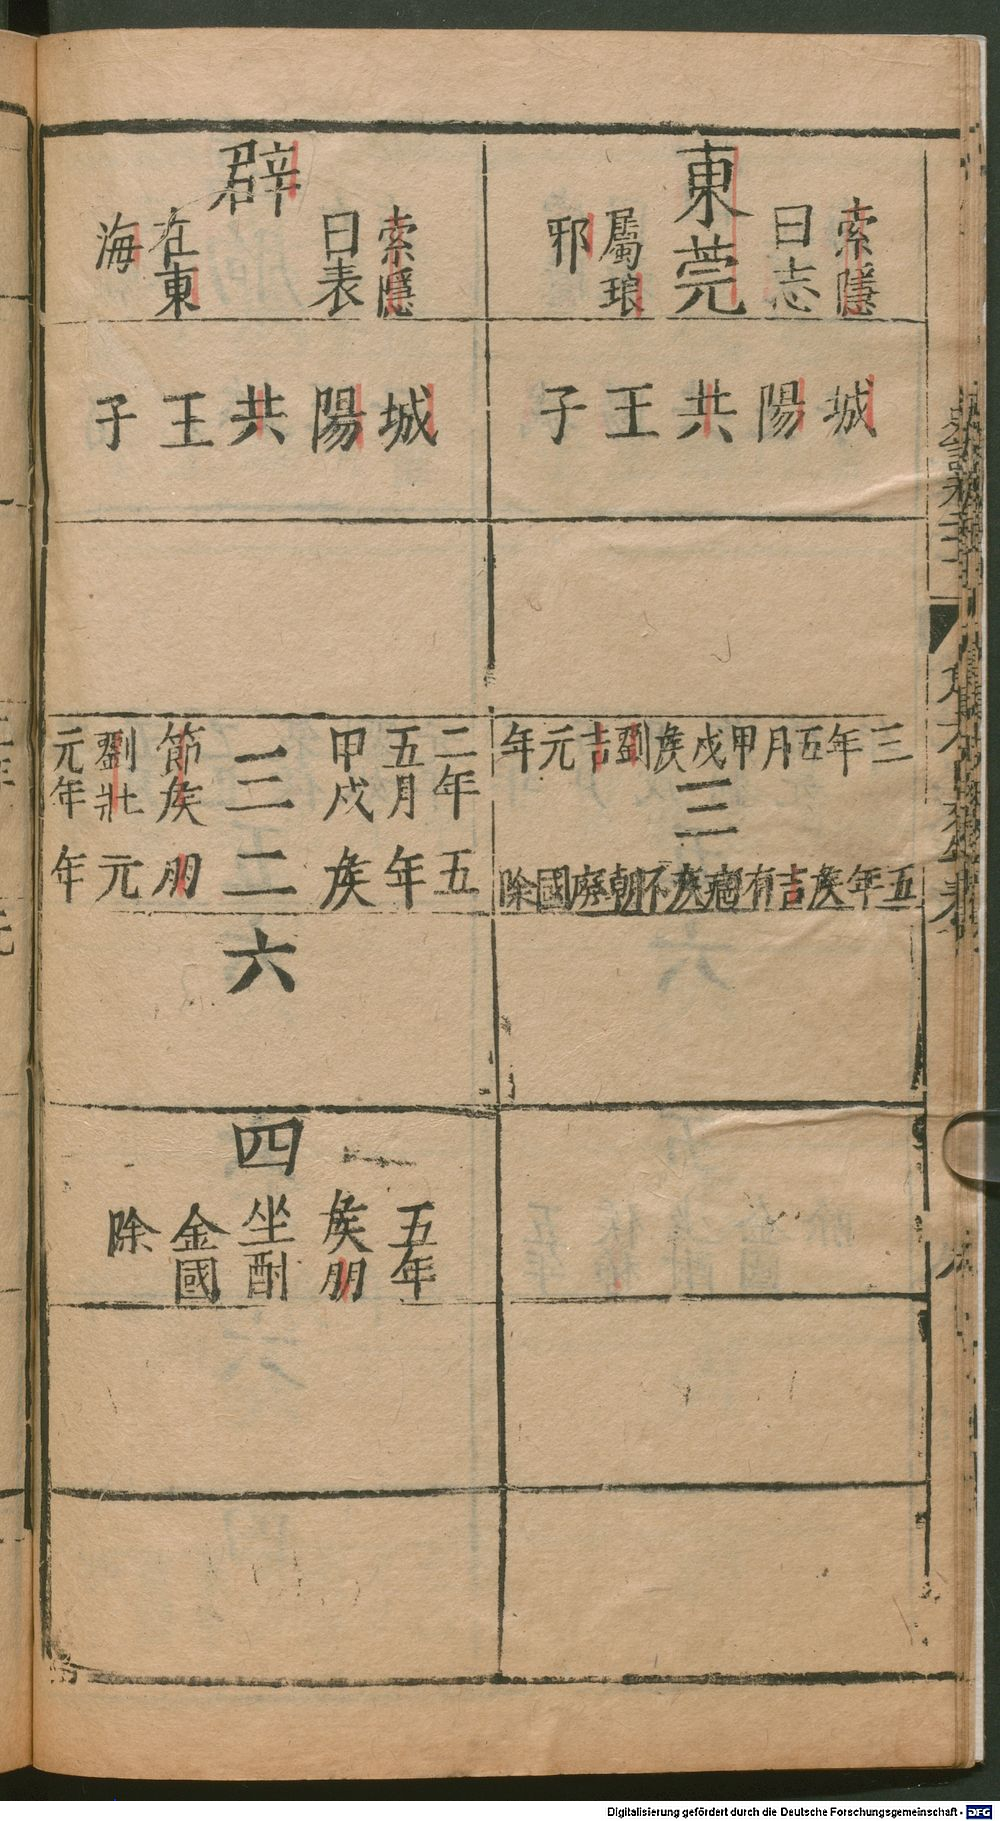 東莞
索隱曰志屬琅邪
城陽共王子
三年五月甲戌矦劉吉元年
三
五年矦吉有痼疾不朝廢國除
辟
索隱曰表在東海
城陽共王子
二年五月甲戌
三
節矦劉壯元年
五年矦
二
朋元年
六
四
五年矦朋坐酎金國除
Digitalisierung gefördert durch die Deutsche Forschungsgemeinschaft - DFG